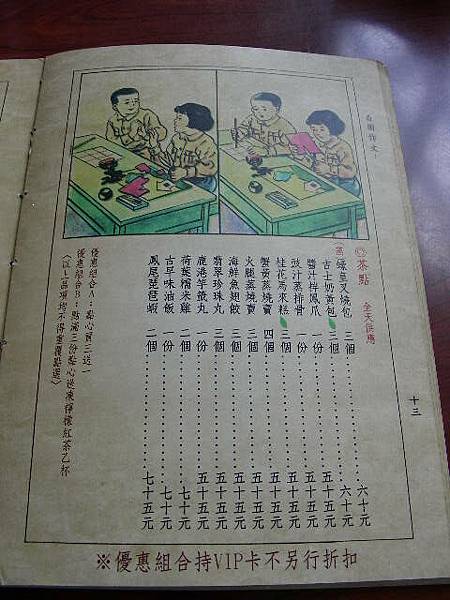 看圖作文：
◎茶點 全天供應
蒸
蠔皇叉燒包 三個 六十元
吉士奶黃包 三個 六十元
醬汁梓鳳爪 一份 五十五元
豉汁蒸排骨 一份 五十五元
桂花馬來糕 三個 五十五元
蟹黃蒸燒賣 四個 五十五元
火腿蒸燒賣 三個 五十五元
海鮮魚翅餃 三個 五十五元
翡翠珍珠丸 三個 五十五元
鹿港芋籤丸 一份 五十五元
荷葉糯米雞 二個 七十元
古早味油飯 一份 七十元
鳳尾琵琶蝦 二個 七十五元
優惠組合A：點心買三送一
優惠組合B：點滿三份點心送凍檸檬紅茶乙杯
〈以上品項均不得重覆點選〉
十三
※優惠組合持VIP卡不另行折扣